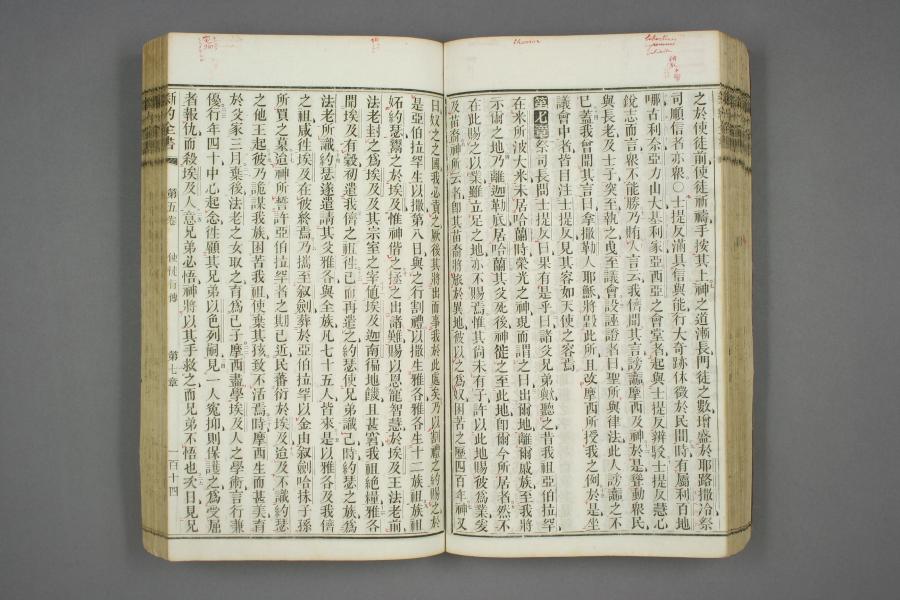 之於使徒前使徒祈禱手按其上神之道漸長門徒之數增盛於耶路撒冷祭
司順信者亦衆○士提反滿具信與能行大奇跡休徵於民間時有屬利百地
哪古利奈亞力山大基利家亞西亞之會堂者起與士提反辯駁士提反慧心
銳志而言衆不能勝乃賄人言云我儕聞其言謗讟摩西及神於是聳動衆民
與長老及士子突至執之曳至議會設誣證者曰聖所與律法此人謗讟之不
已蓋我會聞其言曰拿撒勒人耶穌將毀此所且改摩西所授我之例於是坐
議會中者皆目注士提反見其容如天使之容焉
第七章 祭司長問士提反曰果有是乎曰諸父兄弟歟聽之昔我祖亞伯拉罕
在米所波大米未居哈蘭時榮光之神現而謂之曰出爾地離爾戚族至我將
示爾之地乃離迦勒底居哈蘭其父死後神徙之至此地即爾今所居者然不
在此賜之以業雖立足之地亦不賜焉惟其尚未有子許以此地賜彼爲業爰
及苗裔神所云者即其苗裔將旅於異地彼以之爲奴困苦之歷四百年神又
曰奴之之國我必遠之厥後其將出而事我於此處矣乃以割禮之約賜之於
是亞伯拉罕生以撒第八日與之行割禮以撒生雅各雅各生十二族祖族祖
妬約瑟鬻之於埃及惟神偕之拯之出諸難賜以恩寵智慧於埃及王法老前
法老封之爲埃及及其宗室之宰値埃及迦南徧地饑且甚窘我祖絶糧雅各
聞埃及有穀初遣我儕之祖徃已而再遣之約瑟使兄弟識己時約瑟之族爲
法老所識約瑟遂遣請其父雅各與全族凡七十五人皆來是以雅各及我儕
之祖咸徃埃及在彼終焉乃擕至叙劍葬於亞伯拉罕以金由叙劍哈抹子孫
所買之墓迨神所誓許亞伯拉罕者之期已近民蕃衍於埃及迨及不識約瑟
之他王起彼乃詭謀我族困苦我祖使棄其孩致不活焉時摩西生而甚美育
於父家三月棄後法老之女取之育爲己子摩西盡學埃及人之學術言行兼
優行年四十中心起念徃顧其兄弟以色列嗣見一人寃抑則保護之爲受屈
者報仇而殺埃及人意兄弟必悟神將以其手救之而兄弟不悟也次日見兄
新約全書 第五卷 使徒行傳 第七章 一百十四